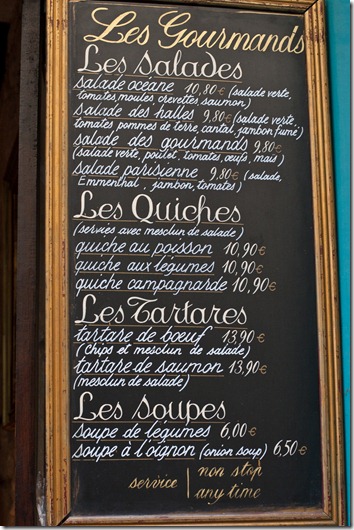 Les Gourmands
Les Salades
salade océane 10,80€ (salade verte,
tomates, moules crevettes, saumon)
salade des halles 9,80€ (salade verte,
tomates pommes de terre, cantal, jambon fumé)
salade des gourmands 9,80€
(salade verte, poulet, tomates, œufs, maïs)
salade parisienne 9,80€ (salade,
Emmenthal, jambon, tomates)
Les Quiches
(servies avec mesclun de salade)
quiche au poisson 10,90€
quiche aux légumes 10,90€
quiche campagnarde 10,90€
Les Tartares
tartare de boeuf 13,90€
(chips et mesclun de salade)
tartare de saumon 13,90€
(mesclun de salade)
Les Soupes
soupe de légumes 6,00€
soupe à l'oignon (onion soup) 6,50€
service | non stop
any time